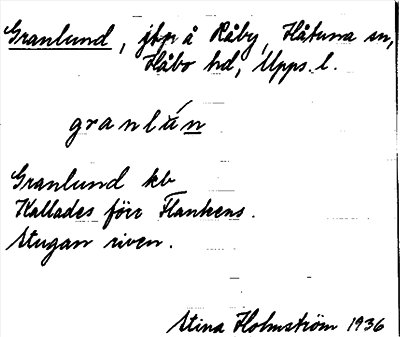 Granlund, jtp å Råby, Håtuna sn,
Håbo hd, Upps. l.
granlún
Granlund kb
Kallades förr Flankens.
Stugan riven.
Stina Holmström 1936